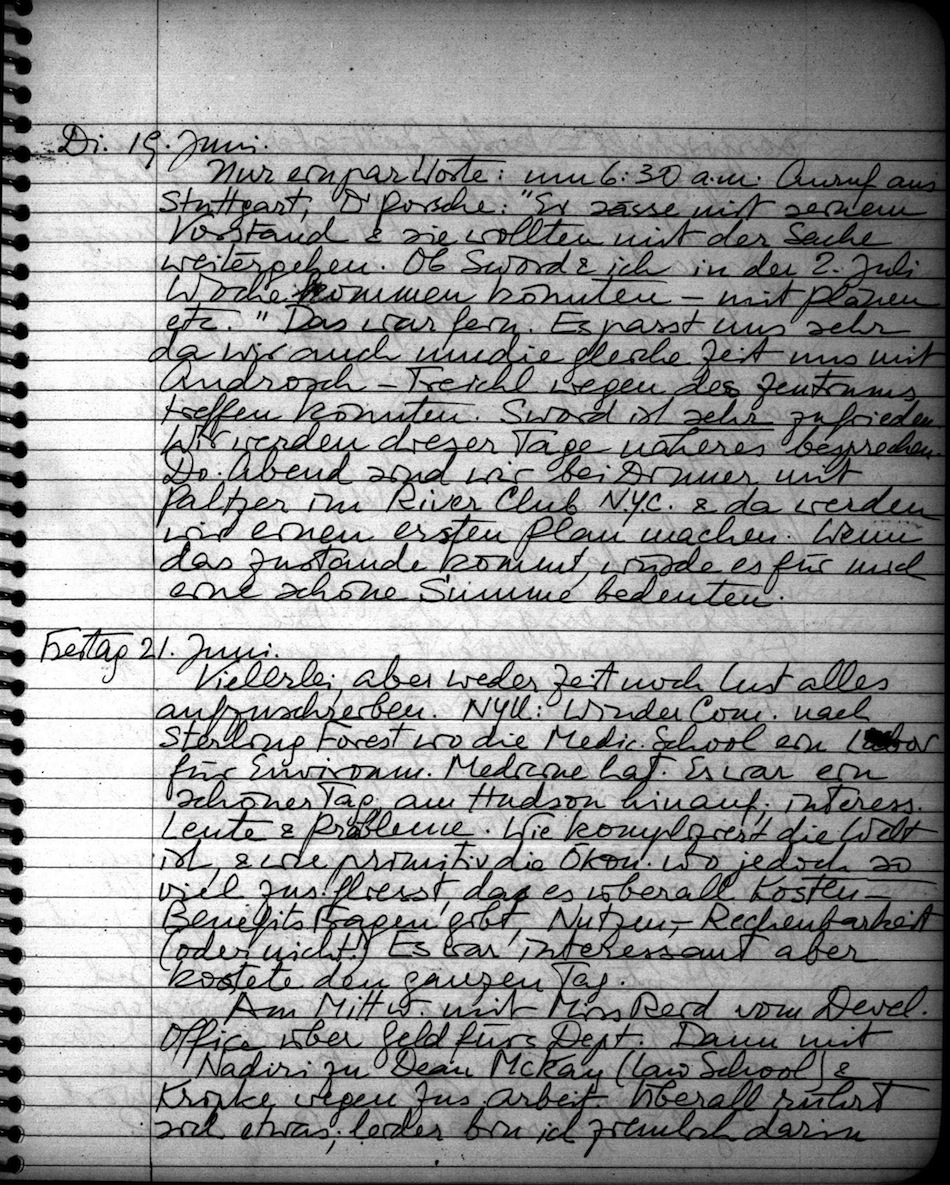 Di. 19. Juni.
Nur ein par Worte: um 6:30 a.m. Anruf aus
Stuttgart, Dr Porsche: "Er sässe mit seinem
Vorstand & sie wollten mit der Sache
weitergehen. Ob Sword & ich in der 2. Juli
Woche kommen könnten – mit Plänen
etc." Das war fein. Es passt uns sehr
da wir auch um die gleiche Zeit uns mit
Androsch – Treichl wegen des Zentrums
treffen könnten. Sword ist sehr zufrieden.
Wir werden dieser Tage näheres besprechen.
Do. Abend sind wir bei Dinner mit
Paltzer im River Club N.Y.C. & da werden
wir einen ersten Plan machen. Wenn
das zustande kommt, würde es für mich
eine schöne Summe bedeuten.
Freitag 21. Juni.
Vielerlei, aber weder Zeit noch Lust alles
aufzuschreiben. NYU: Winder Com. nach
Sterling Forest wo die Medic. School ein Labor
für Environm. Medicine hat. Es war ein
schöner Tag, am Hudson hinauf; interess.
Leute & Probleme. Wie kompliziert die Welt
ist, & wie primitiv die Ökon. wo jedoch so
viel zus. fliesst, dass es überall Kosten–
Benefits Fragen gibt, Nutzen, Rechenbarkeit
(oder nicht!) Es war interessant aber
kostete den ganzen Tag.
Am Mittw. mit Miss Reid vom Devel.
Office über Geld fürs Dept. Dann mit
Nadiri zu Dean McKay (Law School) &
wegen Zus. arbeit. Überall rührt
sich etwas; leider bin ich ziemlich darin